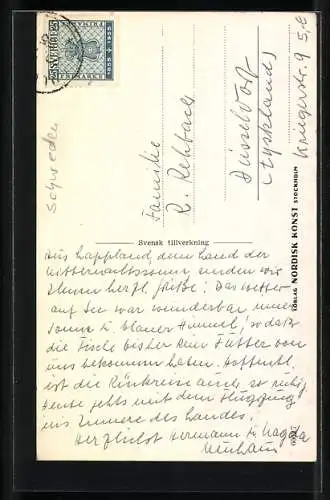 SVERIGE
25
25
FRIMÄRKE
1855
1955
Schweden
Familie
R. Rehbach
Düsseldorf
(Tyskland)
Kriegerstr. 9
Svensk tillverkning
FÖRLAG NORDISK KONST STOCKHOLM
Aus Lappland, dem Land der
Mitternachtssonne, senden wir
Ihnen herzl. Grüße! Das Wetter
auf See war wunderbar, immer
Sonne u. blauer Himmel, so daß
die Fische bisher kein Futter von
uns bekommen haben. Hoffentl.
ist die Rückreise auch so ruhig
Heute gehts mit dem Flugzeug
ins Innere des Landes.
Herzlichst Hermann u. Magda